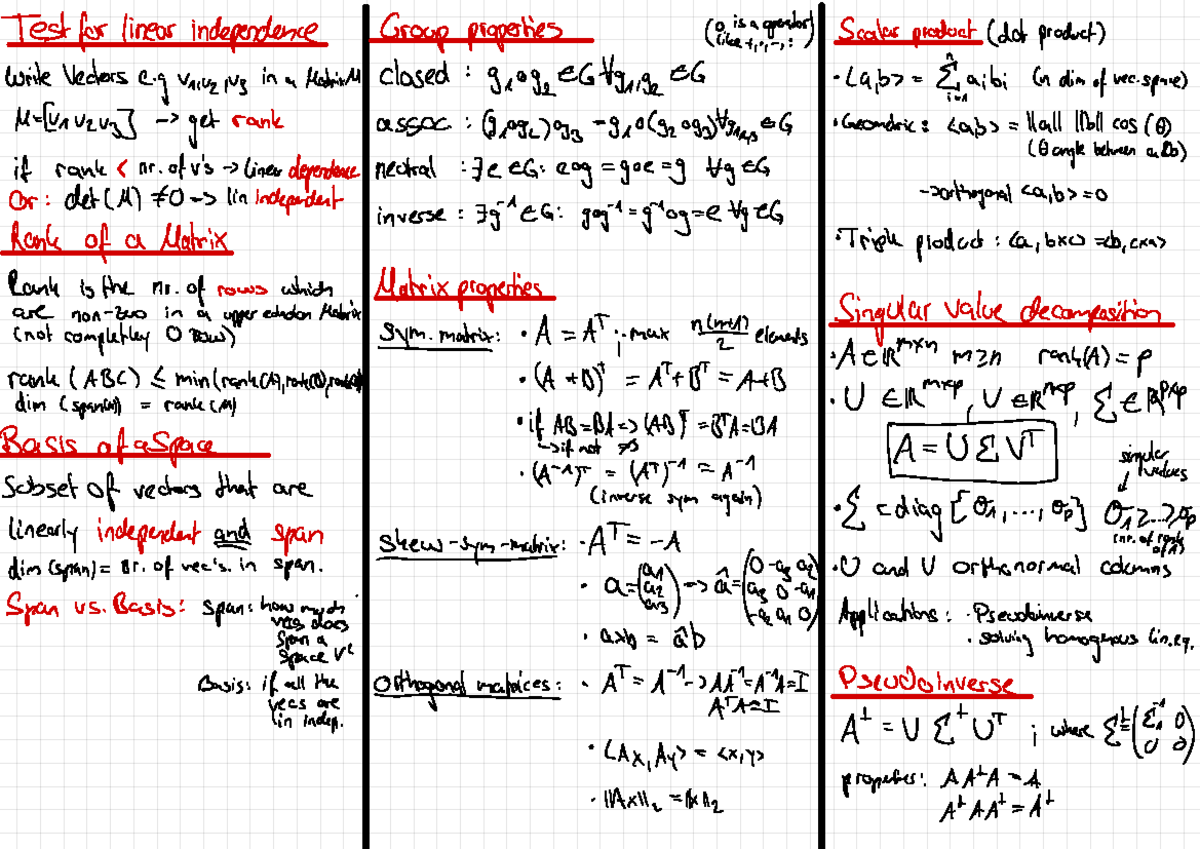 Test for linear independence
Write Vectors e.g v1,v2,v3 in a Matrix M
M=[v1 v2 v3] -> get rank
if rank < nr. of v's -> linear dependence
Or: det(M) ≠0 -> lin independent
Rank of a Matrix
Rank is the nr. of rows which
are non-zero in a upper echelon Matrix
(not completley 0 Row)
rank (ABC) ≤ min(rank(A),rank(B),rank(C))
dim (span(M)) = rank(M)
Basis of a Space
Subset of vectors that are
linearly independent and span
dim(span)= nr. of vec's. in span.
Span vs. Basis: Span: how much
vecs does
span a
space V
Basis: if all the
vecs are
lin indep.
Group properties
(o is a operator
like +,-,·,:)
closed : g1 o g2 ∈ G ∀ g1,g2 ∈ G
assoc : (g1 o g2) o g3 = g1 o (g2 o g3) ∀ g1,g2,g3 ∈ G
neutral : ∃ e ∈ G: e o g = g o e = g ∀ g ∈ G
inverse : ∃ g^-1 ∈ G: g o g^-1 = g^-1 o g = e ∀ g ∈ G
Matrix properties
Sym. matrix: • A = A^T ; max n(n+1)/2 elements
• (A+B)^T = A^T + B^T = A+B
• if AB=BA => (AB)^T = B^T A = BA
-> if not ≠>
• (A^-1)^T = (A^T)^-1 = A^-1
(inverse sym again)
Skew-sym-matrix: • A^T = -A
• a = (a1 a2 a3) -> â = (0 -a3 a2
a3 0 -a1
-a2 a1 0)
• a×b = â b
Orthogonal matrices: • A^T = A^-1 -> AA^-1 = A^-1A = I
A^TA = I
• <Ax, Ay> = <x,y>
• ||Ax||2 = ||x||2
Scalar product (dot product)
• <a,b> = Σ_{i=1}^{n} ai bi (n dim of vec. space)
• Geometric: <a,b> = ||a|| ||b|| cos (θ)
(θ angle between a&b)
-> orthogonal <a,b> = 0
• Triple product: <a, b×c> = <b, c×a>
Singular value decomposition
• A ∈ R^m×n m≥n rank(A) = p
• U ∈ R^m×p, V ∈ R^n×p, Σ ∈ R^p×p
A = U Σ V^T
singular
values
• Σ = diag {σ1, ..., σp} σ1 ≥ ... ≥ σp
(nr. of rank
of A)
• U and V orthonormal columns
Applications: • Pseudoinverse
• solving homogenous lin.eq.
Pseudoinverse
A^+ = V Σ^+ U^T ; where Σ^+ = (Σ1^-1 0
0 0)
properties: A A^+ A = A
A^+ A A^+ = A^+